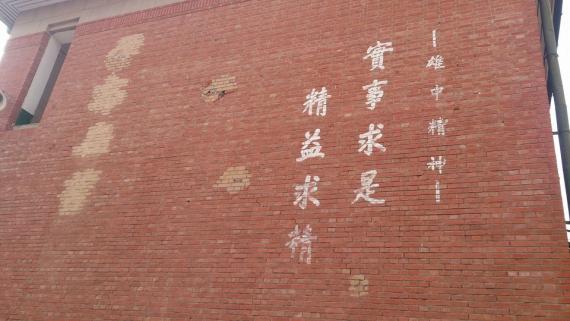 雄中精神
實事求是
精益求精